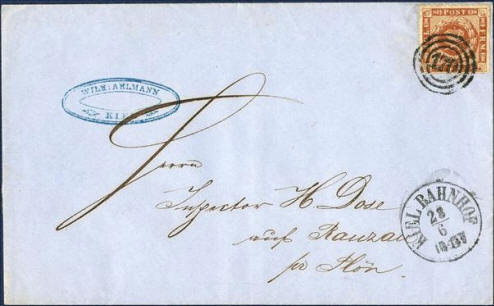 POST
WILH: AHLMANN
KIEL
Herrn
Inspector H Dose
auf Ranzau
pr Plön.
KIEL BAHNHOF
28
6